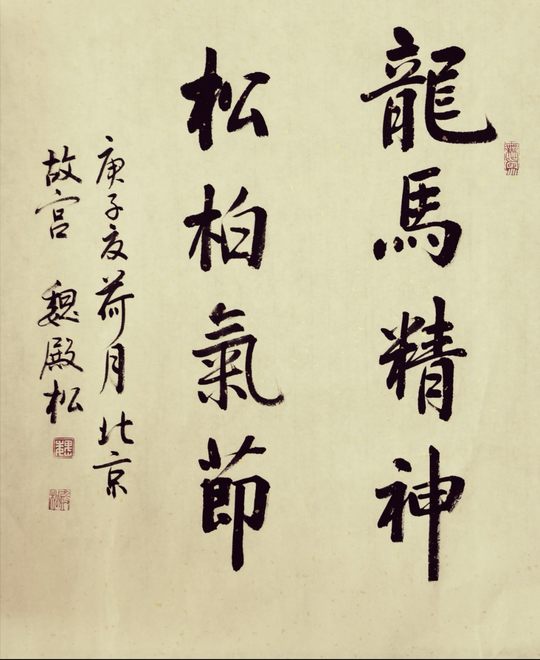 龍馬精神
松柏氣節
庚子夏荷月北京
故宫 魏殿松